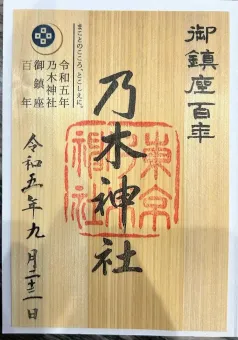 御鎮座百年
まことのこころ、とこしえに。
令和五年
乃木神社
御鎮座
百年
乃木神社
東京
神社
令和五年九月二十二日